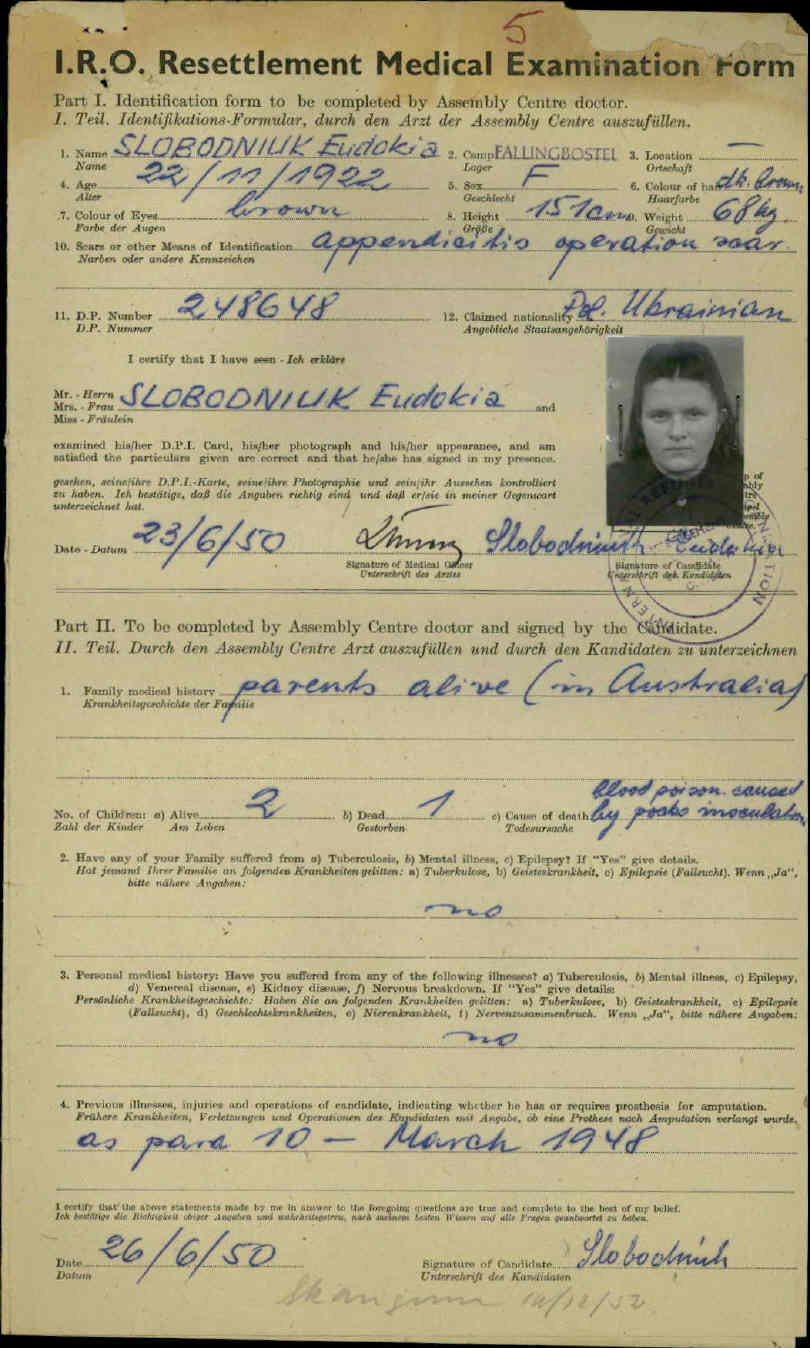 5
I.R.O. Resettlement Medical Examination Form
Part I. Identification form to be completed by Assembly Centre doctor.
I. Teil. Identifikations-Formular, durch den Arzt der Assembly Centre auszufüllen.
1. Name SLOBODNIUK Eudokia 2. Camp FALLINGBOSTEL 3. Location —
Name Lager Ortschaft
4. Age 22/11/1922 5. Sex F 6. Colour of hair dk. brown
Alter Geschlecht Haarfarbe
7. Colour of Eyes brown 8. Height 151cm 9. Weight 68kg.
Farbe der Augen Größe Gewicht
10. Scars or other Means of Identification appendicitis operation scar.
Narben oder andere Kennzeichen
11. D.P. Number 248648 12. Claimed nationality Pol. Ukrainian
D.P. Nummer Angebliche Staatsangehörigkeit
I certify that I have seen - Ich erkläre
Mr. - Herrn
Mrs. - Frau SLOBODNIUK Eudokia and
Miss - Fräulein
examined his/her D.P.I. Card, his/her photograph and his/her appearance, and am
satisfied the particulars given are correct and that he/she has signed in my presence.
gesehen, seine/ihre D.P.I.-Karte, seine/ihre Photographie und sein/ihr Aussehen kontrolliert
zu haben. Ich bestätige, daß die Angaben richtig sind und daß er/sie in meiner Gegenwart
unterzeichnet hat.
Date - Datum 23/6/50 Slobodniuk Eudokia
Signature of Medical Officer Signature of Candidate
Unterschrift des Arztes Unterschrift des Kandidaten
Part II. To be completed by Assembly Centre doctor and signed by the Candidate.
II. Teil. Durch den Assembly Centre Arzt auszufüllen und durch den Kandidaten zu unterzeichnen
1. Family medical history parents alive (in Australia)
Krankheitsgeschichte der Familie
blood poison. caused
No. of Children: a) Alive 2 b) Dead 1 c) Cause of death by pocks inoculation
Zahl der Kinder Am Leben Gestorben Todesursache
2. Have any of your Family suffered from a) Tuberculosis, b) Mental illness, c) Epilepsy? If "Yes" give details.
Hat jemand Ihrer Familie an folgenden Krankheiten gelitten: a) Tuberkulose, b) Geisteskrankheit, c) Epilepsie (Fallsucht). Wenn „Ja",
bitte nähere Angaben:
no
3. Personal medical history: Have you suffered from any of the following illnesses? a) Tuberculosis, b) Mental illness, c) Epilepsy,
d) Venereal disease, e) Kidney disease, f) Nervous breakdown. If "Yes" give details:
Persönliche Krankheitsgeschichte: Haben Sie an folgenden Krankheiten gelitten: a) Tuberkulose, b) Geisteskrankheit, c) Epilepsie
(Fallsucht), d) Geschlechtskrankheiten, e) Nierenkrankheit, f) Nervenzusammenbruch. Wenn „Ja", bitte nähere Angaben:
no
4. Previous illnesses, injuries and operations of candidate, indicating whether he has or requires prosthesis for amputation.
Frühere Krankheiten, Verletzungen und Operationen des Kandidaten mit Angabe, ob eine Prothese nach Amputation verlangt wurde.
as para 10 — March 1948
I certify that the above statements made by me in answer to the foregoing questions are true and complete to the best of my belief.
Ich bestätige die Richtigkeit obiger Angaben und wahrheitsgetreu, nach meinem besten Wissen auf alle Fragen geantwortet zu haben.
Date 26/6/50 Signature of Candidate Slobodniuk
Datum Unterschrift des Kandidaten